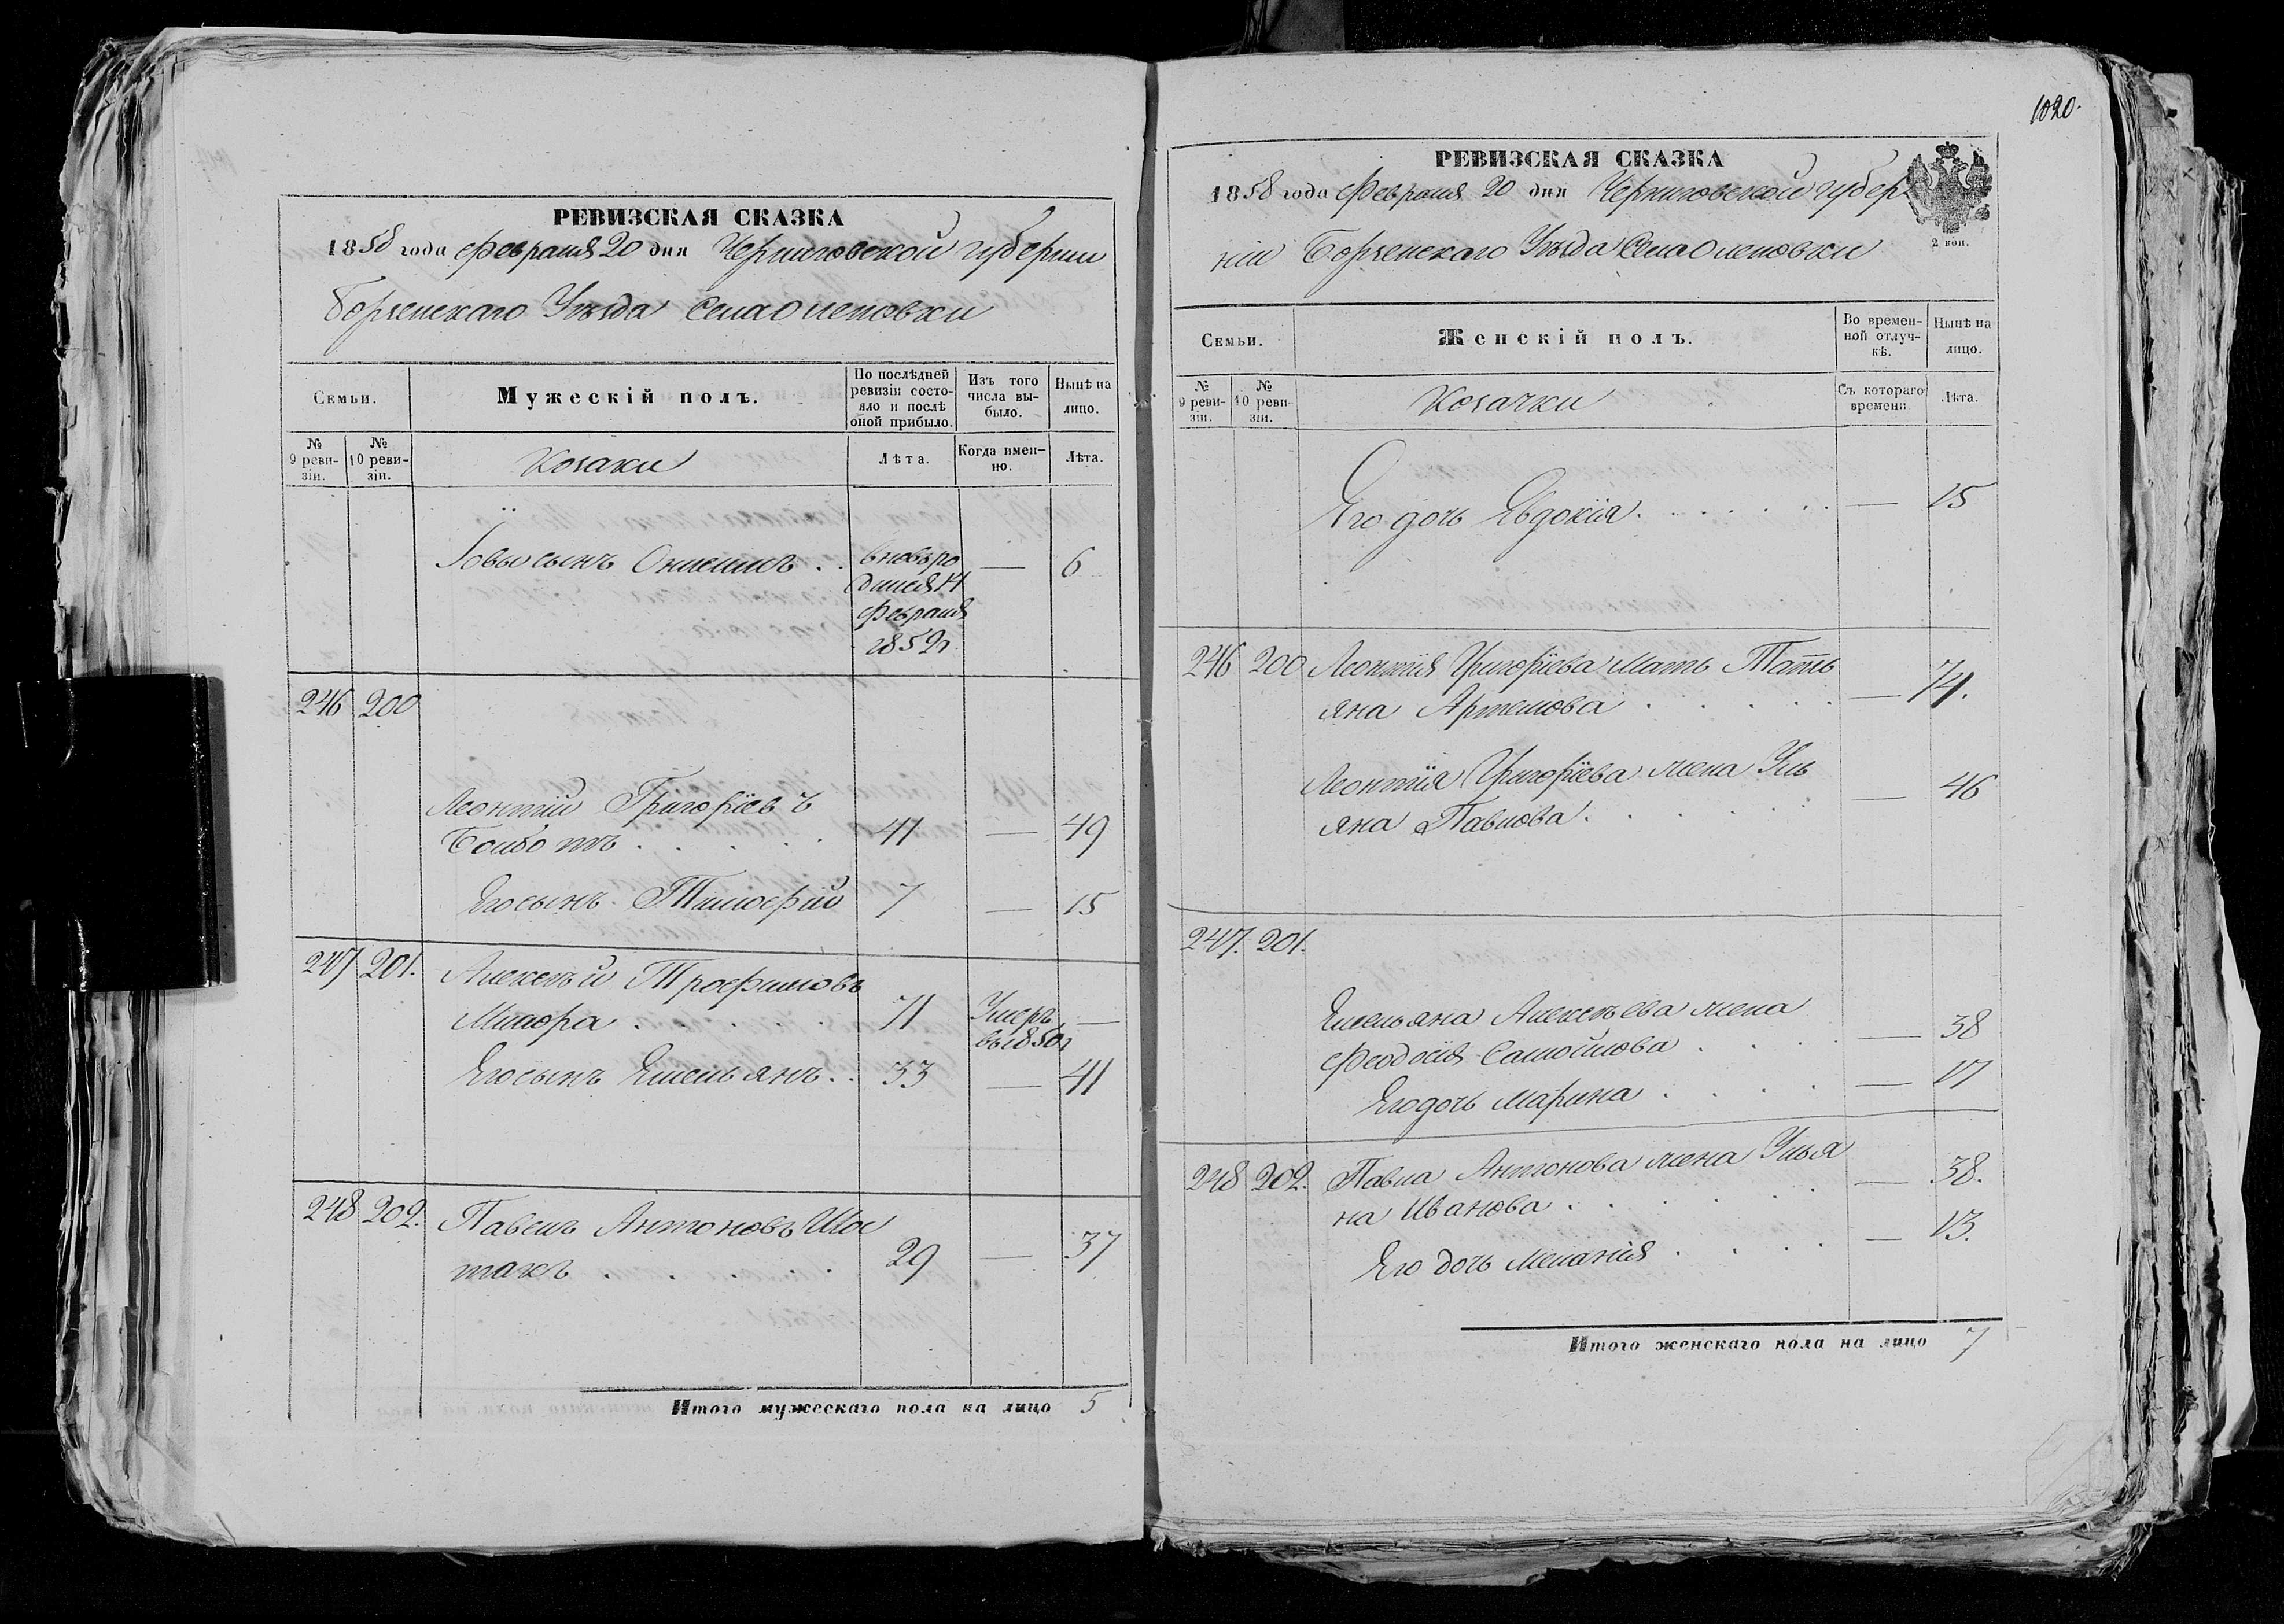 РЕВИЗСКАЯ СКАЗКА
1858 года Февраля 20 дня Черниговской губернии
Борзенскаго Уѣзда Села Оленовки
Семьи.
Мужескій полъ.
По послѣдней ревизіи состояло и послѣ оной прибыло.
Изъ того числа выбыло.
Нынѣ на лицо.
№ 9 ревизіи.
№ 10 ревизіи.
Козаки
Лѣта.
Когда именно.
Лѣта.
Іовы сынъ Онисимъ . . вновь ро — 6
дился 14
Февраля
1852 г.
246 200
Леонтій Григоріевъ
. . . . . 41 — 49
Его сынъ Тимофій 7 — 15
247 201. Алексѣй Трофимовъ
. . . . . 71 Умеръ —
въ 1850 г
Его сынъ Емельянъ . . 33 — 41
248 202. Павелъ Антоновъ Шос
такъ . . . . . 29 — 37
Итого мужескаго пола на лицо 5
1020.
РЕВИЗСКАЯ СКАЗКА
1858 года Февраля 20 дня Черниговской губер
ніи Борзенскаго Уѣзда Села Оленовки
2 коп.
Семьи.
Женскій полъ.
Во временной отлучкѣ.
Нынѣ на лицо.
№ 9 ревизіи.
№ 10 ревизіи.
Козачки
Съ котораго времени.
Лѣта.
Его дочь Евдокія . . . . . . — 15
246 200 Леонтія Григоріева мать Тать
яна Артемова . . . . . — 74.
Леонтія Григоріева жена Уль
яна Павлова . . . . — 46
247. 201.
Емельяна Алексѣева жена
Феодосія Самойлова . . . . — 38
Его дочь Марина . . . . — 17
248 202. Павла Антонова жена Улья
на Иванова . . . . . — 38.
Его дочь Меланія . . . . — 13.
Итого женскаго пола на лицо 7